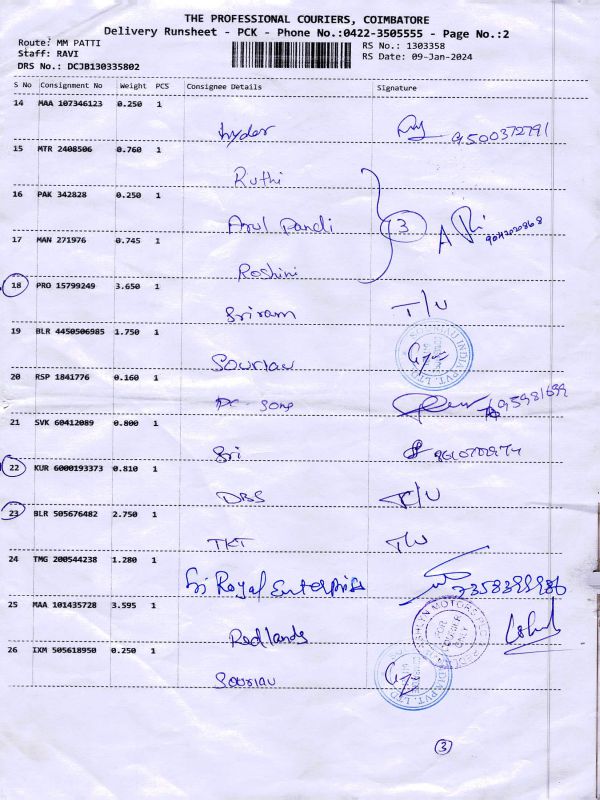 THE PROFESSIONAL COURIERS, COIMBATORE
Delivery Runsheet - PCK - Phone No.:0422-3505555 - Page No.:2
Route: MM PATTI RS No.: 1303358
Staff: RAVI RS Date: 09-Jan-2024
DRS No.: DCJB130335802
S No Consignment No Weight PCS Consignee Details Signature
14 MAA 107346123 0.250 1
hyder 9500372791
15 MTR 2408506 0.760 1
Ruthi
16 PAK 342828 0.250 1
Arul Pandi 3
17 MAN 271976 0.745 1
Roshini
18 PRO 15799249 3.650 1
Sriram T/U
19 BLR 4450506985 1.750 1
Souriau
20 RSP 1841776 0.160 1
21 SVK 60412089 0.800 1
Sri
22 KUR 6000193373 0.810 1
DBS T/U
23 BLR 505676482 2.750 1
TKT T/U
24 TMG 200544238 1.280 1
Sri Royal Enterprise
25 MAA 101435728 3.595 1
Redlands
26 IXM 505618950 0.250 1
Souriau
3